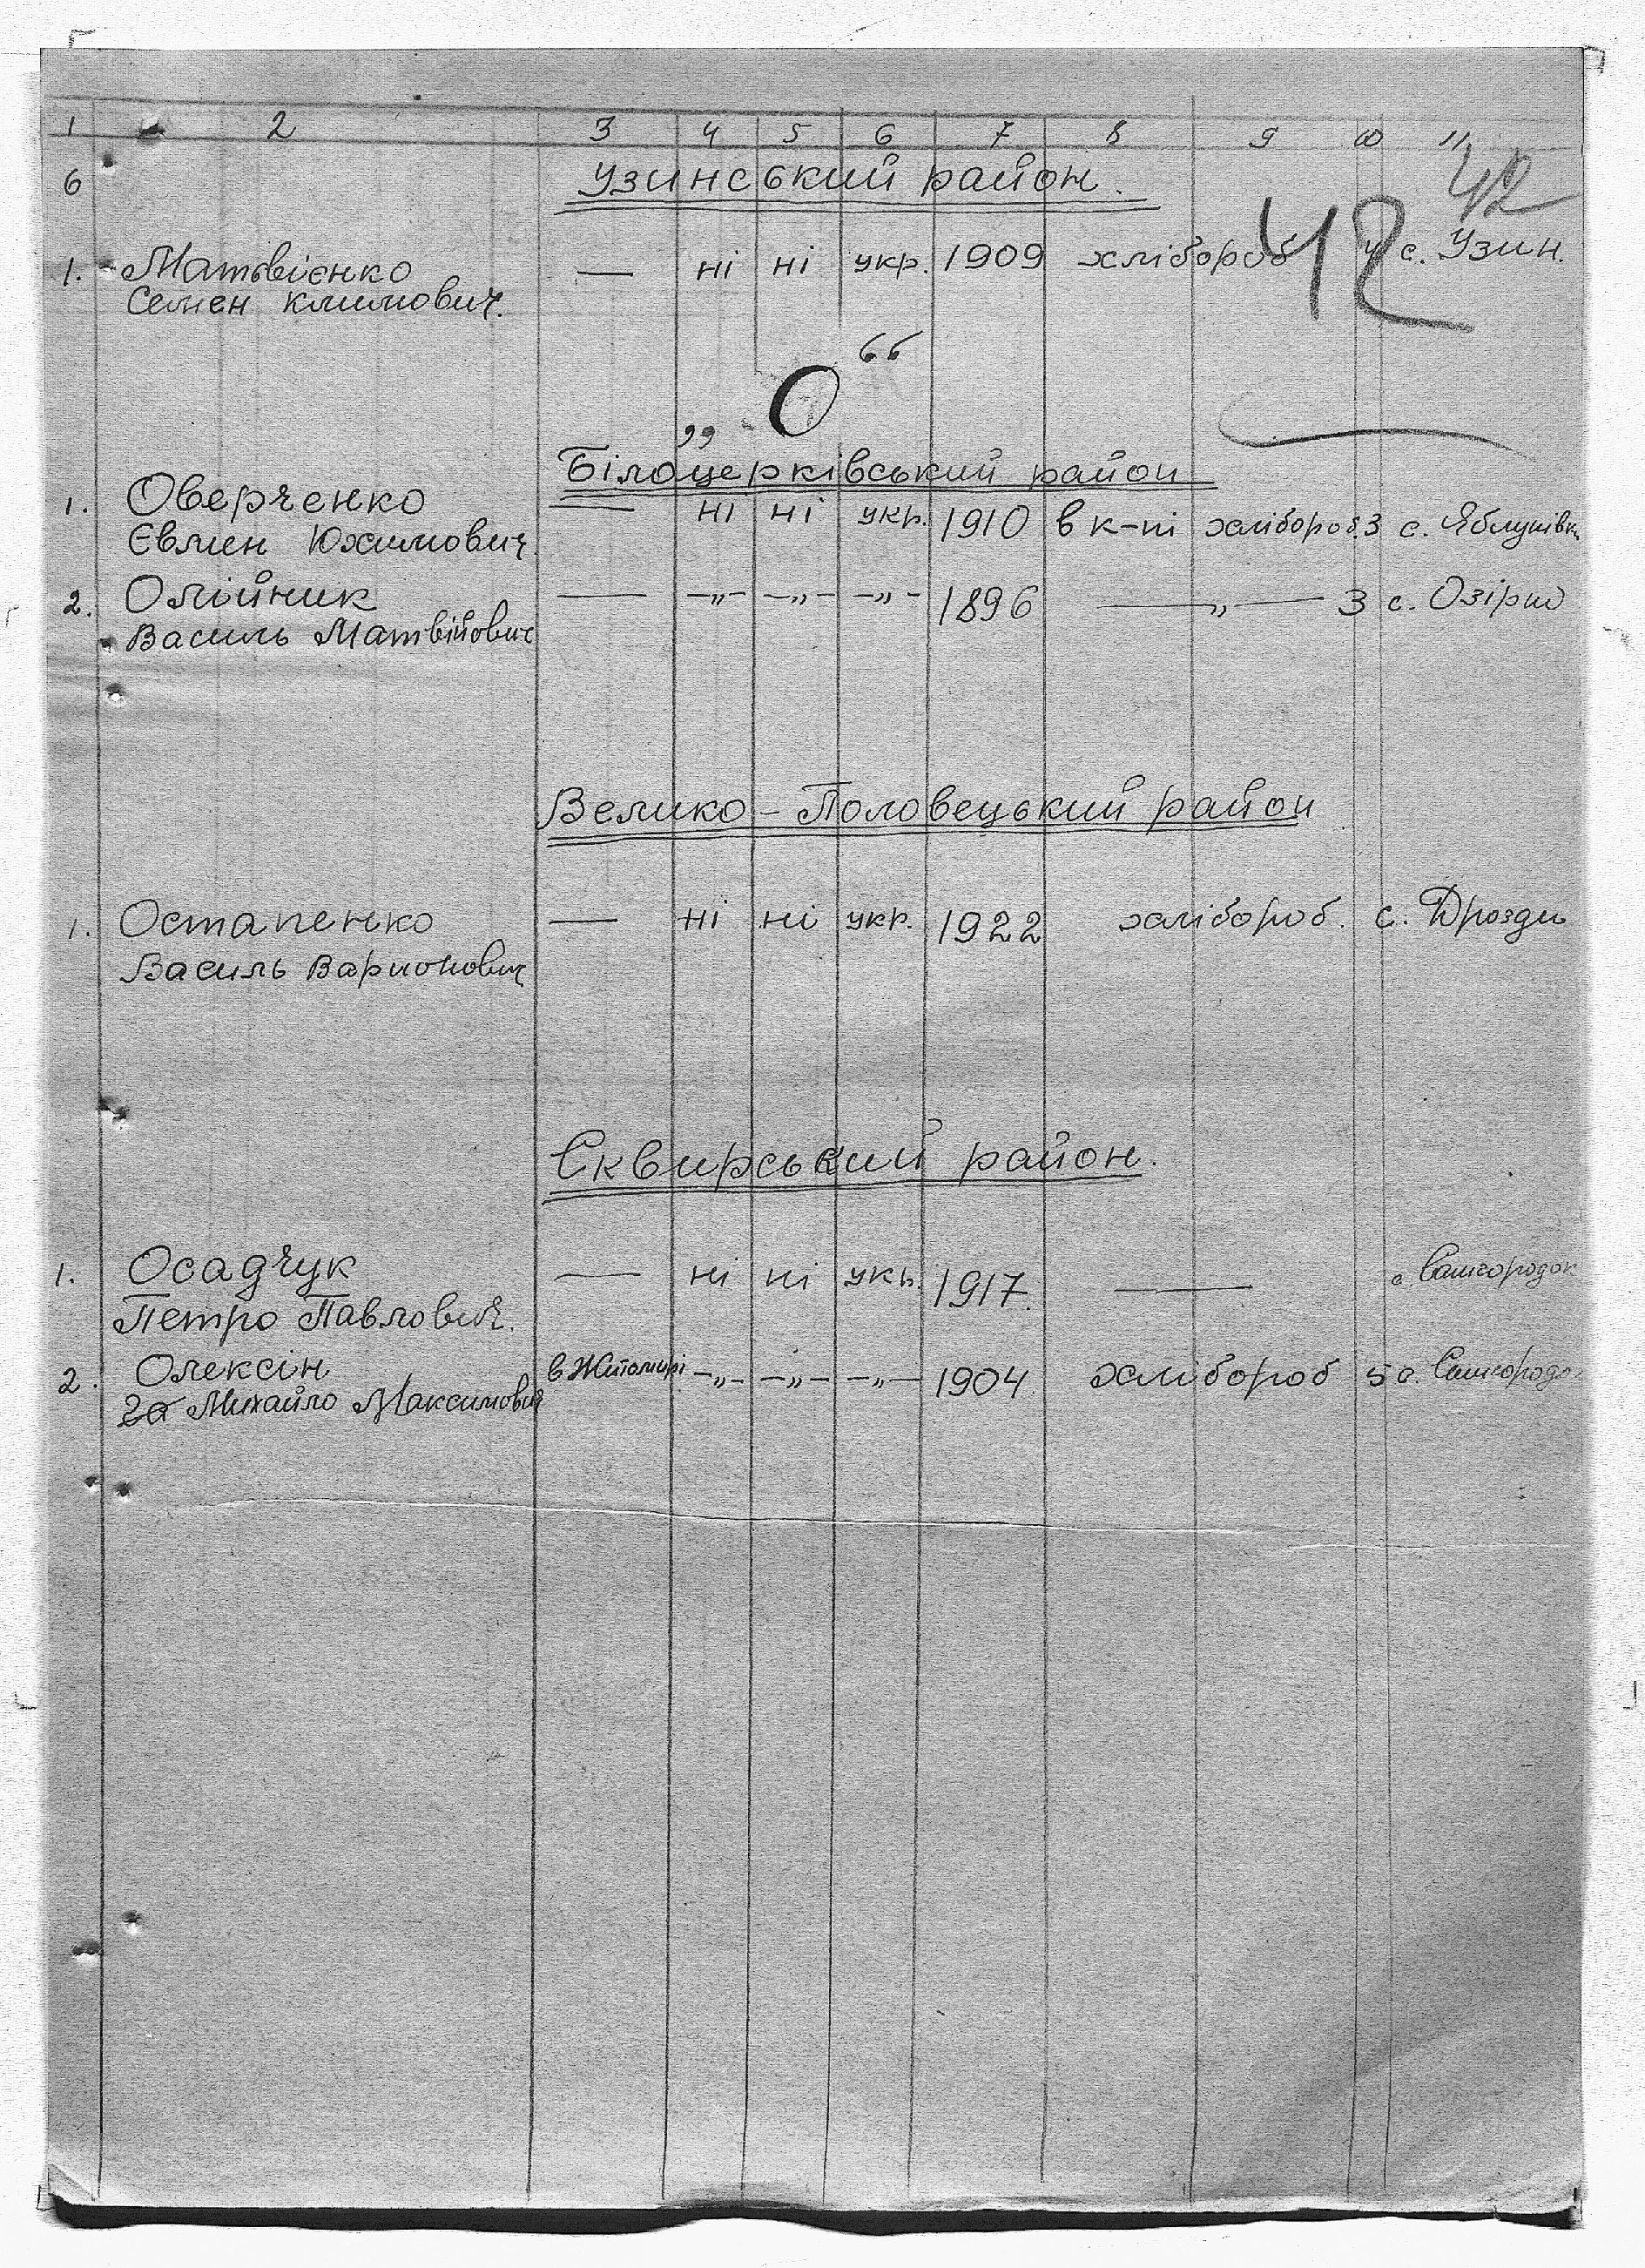 1 2 3 4 5 6 7 8 9 10 11
42
6 Узинський район.
42
1. Матвієнко — ні ні укр. 1909 хлібороб 4 с. Узин.
Семен Климович.
„О“
Білоцерківський район
1. Оверченко — ні ні укр. 1910 в к-пі хлібороб. 3 с. Яблунівка
Євмен Юхимович.
2. Олійник — -„- -„- -„- 1896 —„— 3 с. Озірно
Василь Матвійович
Велико-Половецький район
1. Остапенко — ні ні укр. 1922 хлібороб. с. Дрозди
Василь Варионович
Сквирський район.
1. Осадчук — ні ні укр. 1917. — с. Самгородок
Петро Павлович.
2. Олексін в Житомирі -„- -„- -„- 1904. хлібороб 5 с. Самгородо
Михайло Максимович